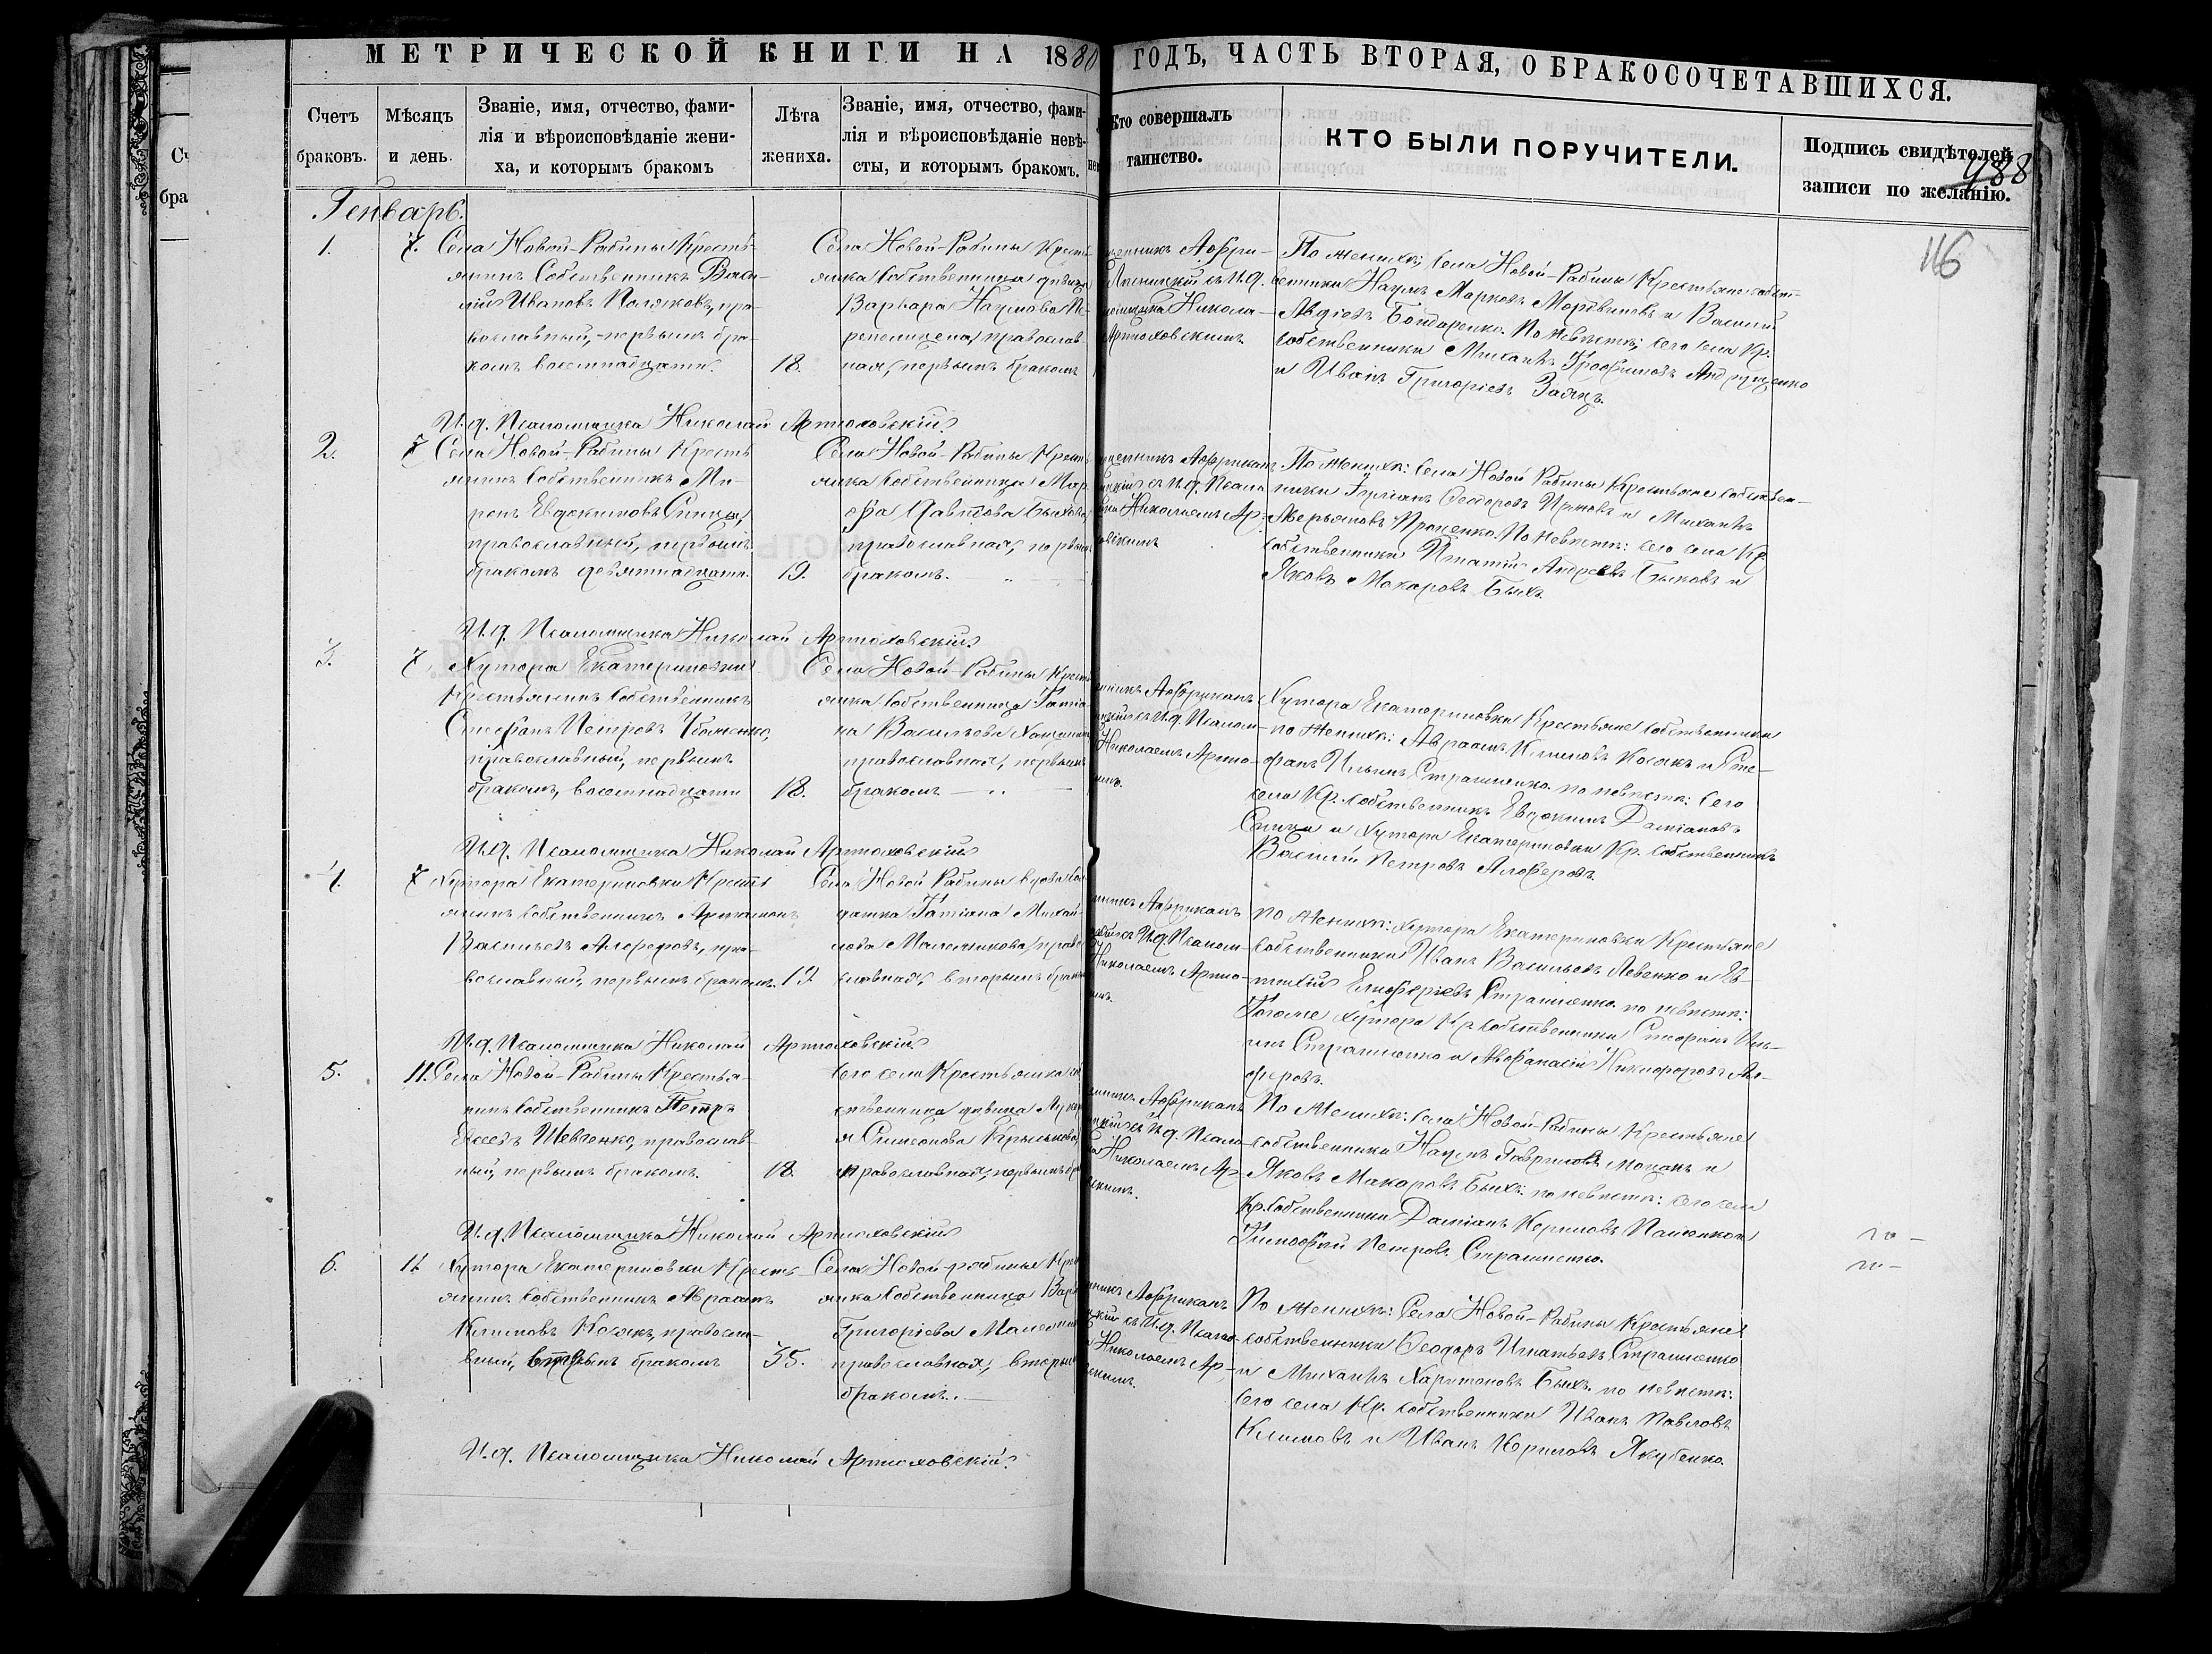 МЕТРИЧЕСКОЙ КНИГИ НА 1880 ГОДЪ, ЧАСТЬ ВТОРАЯ, О БРАКОСОЧЕТАВШИХСЯ.
Счетъ браковъ.
Мѣсяцъ и день.
Званіе, имя, отчество, фами-
лія и вѣроисповѣданіе жени-
ха, и которымъ бракомъ
Лѣта жениха.
Званіе, имя, отчество, фами-
лія и вѣроисповѣданіе невѣ-
сты, и которымъ бракомъ.
Кто совершалъ
таинство.
КТО БЫЛИ ПОРУЧИТЕЛИ.
Подпись свидѣтелей
записи по желанію.
988
116
Генварь.
1.
7.
Села Новой-Рабины Кресть-
янинъ Собственникъ Васи-
лій Ивановъ Поляковъ, пра-
вославный, первымъ бра-
комъ восемнадцати.
18.
Села Новой-Рабины Кресть
янка Собственница дѣвица
Варвара Наумова
православ
ная, первымъ бракомъ
Афри-
съ И.д.
Никола-
Артюховскимъ
По женихѣ: Села Новой-Рабины Крестьяне собст-
венники Наумъ Марковъ Мордвиновъ и Василій
Авдіевъ Бондаренко. По невѣстѣ: сего села Кр.
собственники Михаилъ Трофимовъ Андрущенко
и Иванъ Григоріевъ Заяцъ.
И.д. Псаломщика Николай Артюховскій
2.
7
Села Новой-Рабины Кресть
янинъ Собственникъ Ми-
ронъ Евдокимовъ Спица,
православный, первымъ
бракомъ девятнадцати.
19.
Села Новой-Рабины Кресть
янка Собственница Мар
фа Давидова Быхова
православная, первым
бракомъ.
Африкан
съ И.д. Псало
Николаемъ Ар-
По женихѣ: Села Новой Рабины Крестьяне собствен-
ники Ѳеодоровъ и Михаилъ
Аверьяновъ Проценко. По невѣстѣ: сего села Кр
собственники Игнатій Андреевъ Быковъ и
Яковъ Макаровъ Быхъ.
И.д. Псаломщика Николай Артюховскій
3.
7
Хутора Екатериновки
Крестьянинъ Собственникъ
Стефанъ Петровъ
православный, первымъ
бракомъ, восемнадцати
18.
Села Новой-Рабины Кресть
янка Собственница Татіа
на Васильева
православная, первымъ
бракомъ
Африканъ
съ И.д. Псалом-
Николаемъ Артю-
Хутора Екатериновки Крестьяне Собственники
по женихѣ: Авраамъ Климовъ Косакъ и Сте-
фанъ Ильинъ Страшненко. по невѣстѣ: сего
села Кр. собственникъ Евдокимъ Даміановъ
Спица и Хутора Екатериновки Кр. собственникъ
Василій Петровъ Алоферовъ.
И.д. Псаломщика Николай Артюховскій
4.
7
Хутора Екатериновки Кресть
янинъ Собственникъ Артамонъ
Васильевъ Алоферовъ, пра-
вославный, первымъ бракомъ.
19
Села Новой Рабины вдова Сол
датка Татіана Михай-
лова право
славная, вторымъ брак
Африканъ
съ И.д. Псалом-
Николаемъ Артю-
По женихѣ: Хутора Екатериновки Крестьяне
собственники Иванъ Васильевъ Левенко и Ев-
Елиферіевъ Страшненко. по невѣстѣ:
Тогоже хутора Кр. собственники Стефанъ Иль-
инъ Страшненко и Аѳанасій Никифоровъ Ал-
оферовъ.
И.д. Псаломщика Николай Артюховскій
5.
11.
Села Новой-Рабины Крестья-
нинъ Собственникъ Петръ
Шевченко, православ-
ный, первымъ бракомъ.
18.
Сего села Крестьянка со
бственница дѣвица
Симеонова
православная, первымъ бра
Африканъ
съ И.д. Псало-
Николаемъ Ар-
По женихѣ: Села Новой-Рабины Крестьяне
собственники Наумъ Гавриловъ и
Яковъ Макаровъ Быхъ. по невѣстѣ: сего села
Кр. Собственники Даміанъ
Тимофей Петровъ Страшненко.
И.д. Псаломщика Николай Артюховскій
6.
11
Хутора Екатериновки Кресть
янинъ Собственникъ Авраамъ
Климовъ Косакъ, правосла-
вный, вторымъ бракомъ
35.
Села Новой-рабины Кре
янка Собственница Варв
Григоріева
православная, вторым
бракомъ.
Африканъ
съ И.д. Псало-
Николаемъ Ар-
По женихѣ: Села Новой-Рабины Крестьяне
собственники Ѳеодоръ Игнатьевъ Страшненко
и Михаилъ Харитоновъ Быхъ. по невѣстѣ:
Сего села Кр. собственники Иванъ Павловъ
Климовъ и Иванъ Кириловъ Якубенко.
И.д. Псаломщика Николай Артюховскій.